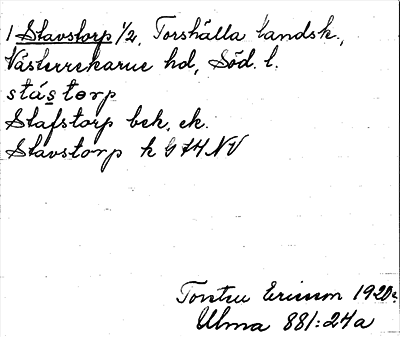 1 Stavstorp 1/2, Torshälla landsk.,
Västerrekarne hd, Söd. l.
stás torp
Stafstorp bek. ek.
Stavstorp k G 74 NV
Torsten Ericsson 1920
Ulma 881:24a